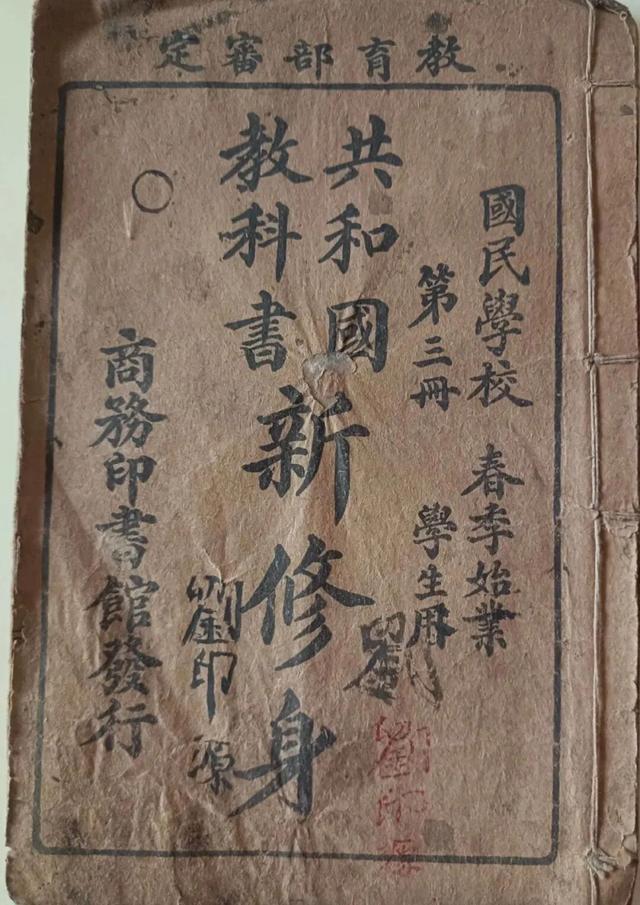 教育部審定
國民學校 春季始業
第三冊 學生用
共和國
教科書
新修身
劉印源
劉
劉印源
商務印書館發行